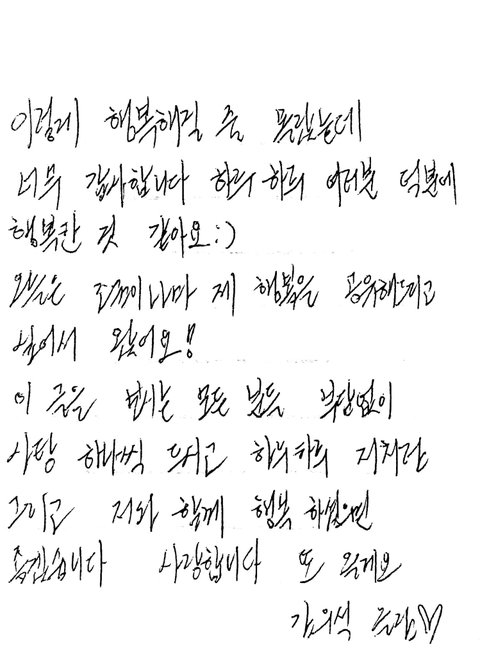 이렇게 행복해질 줄 몰랐는데
너무 감사합니다 하루하루 여러분 덕분에
행복한 것 같아요:)
오늘은 조금이나마 제 행복을 공유해드리고
싶어서 왔어요!
이 글을 보시는 모든 분들 부담없이
사탕 하나씩 드시고 하루하루 지치지만
그리고 저와 함께 행복 하셨으면
좋겠습니다 사랑합니다 또 올게요
김의석 올림♡